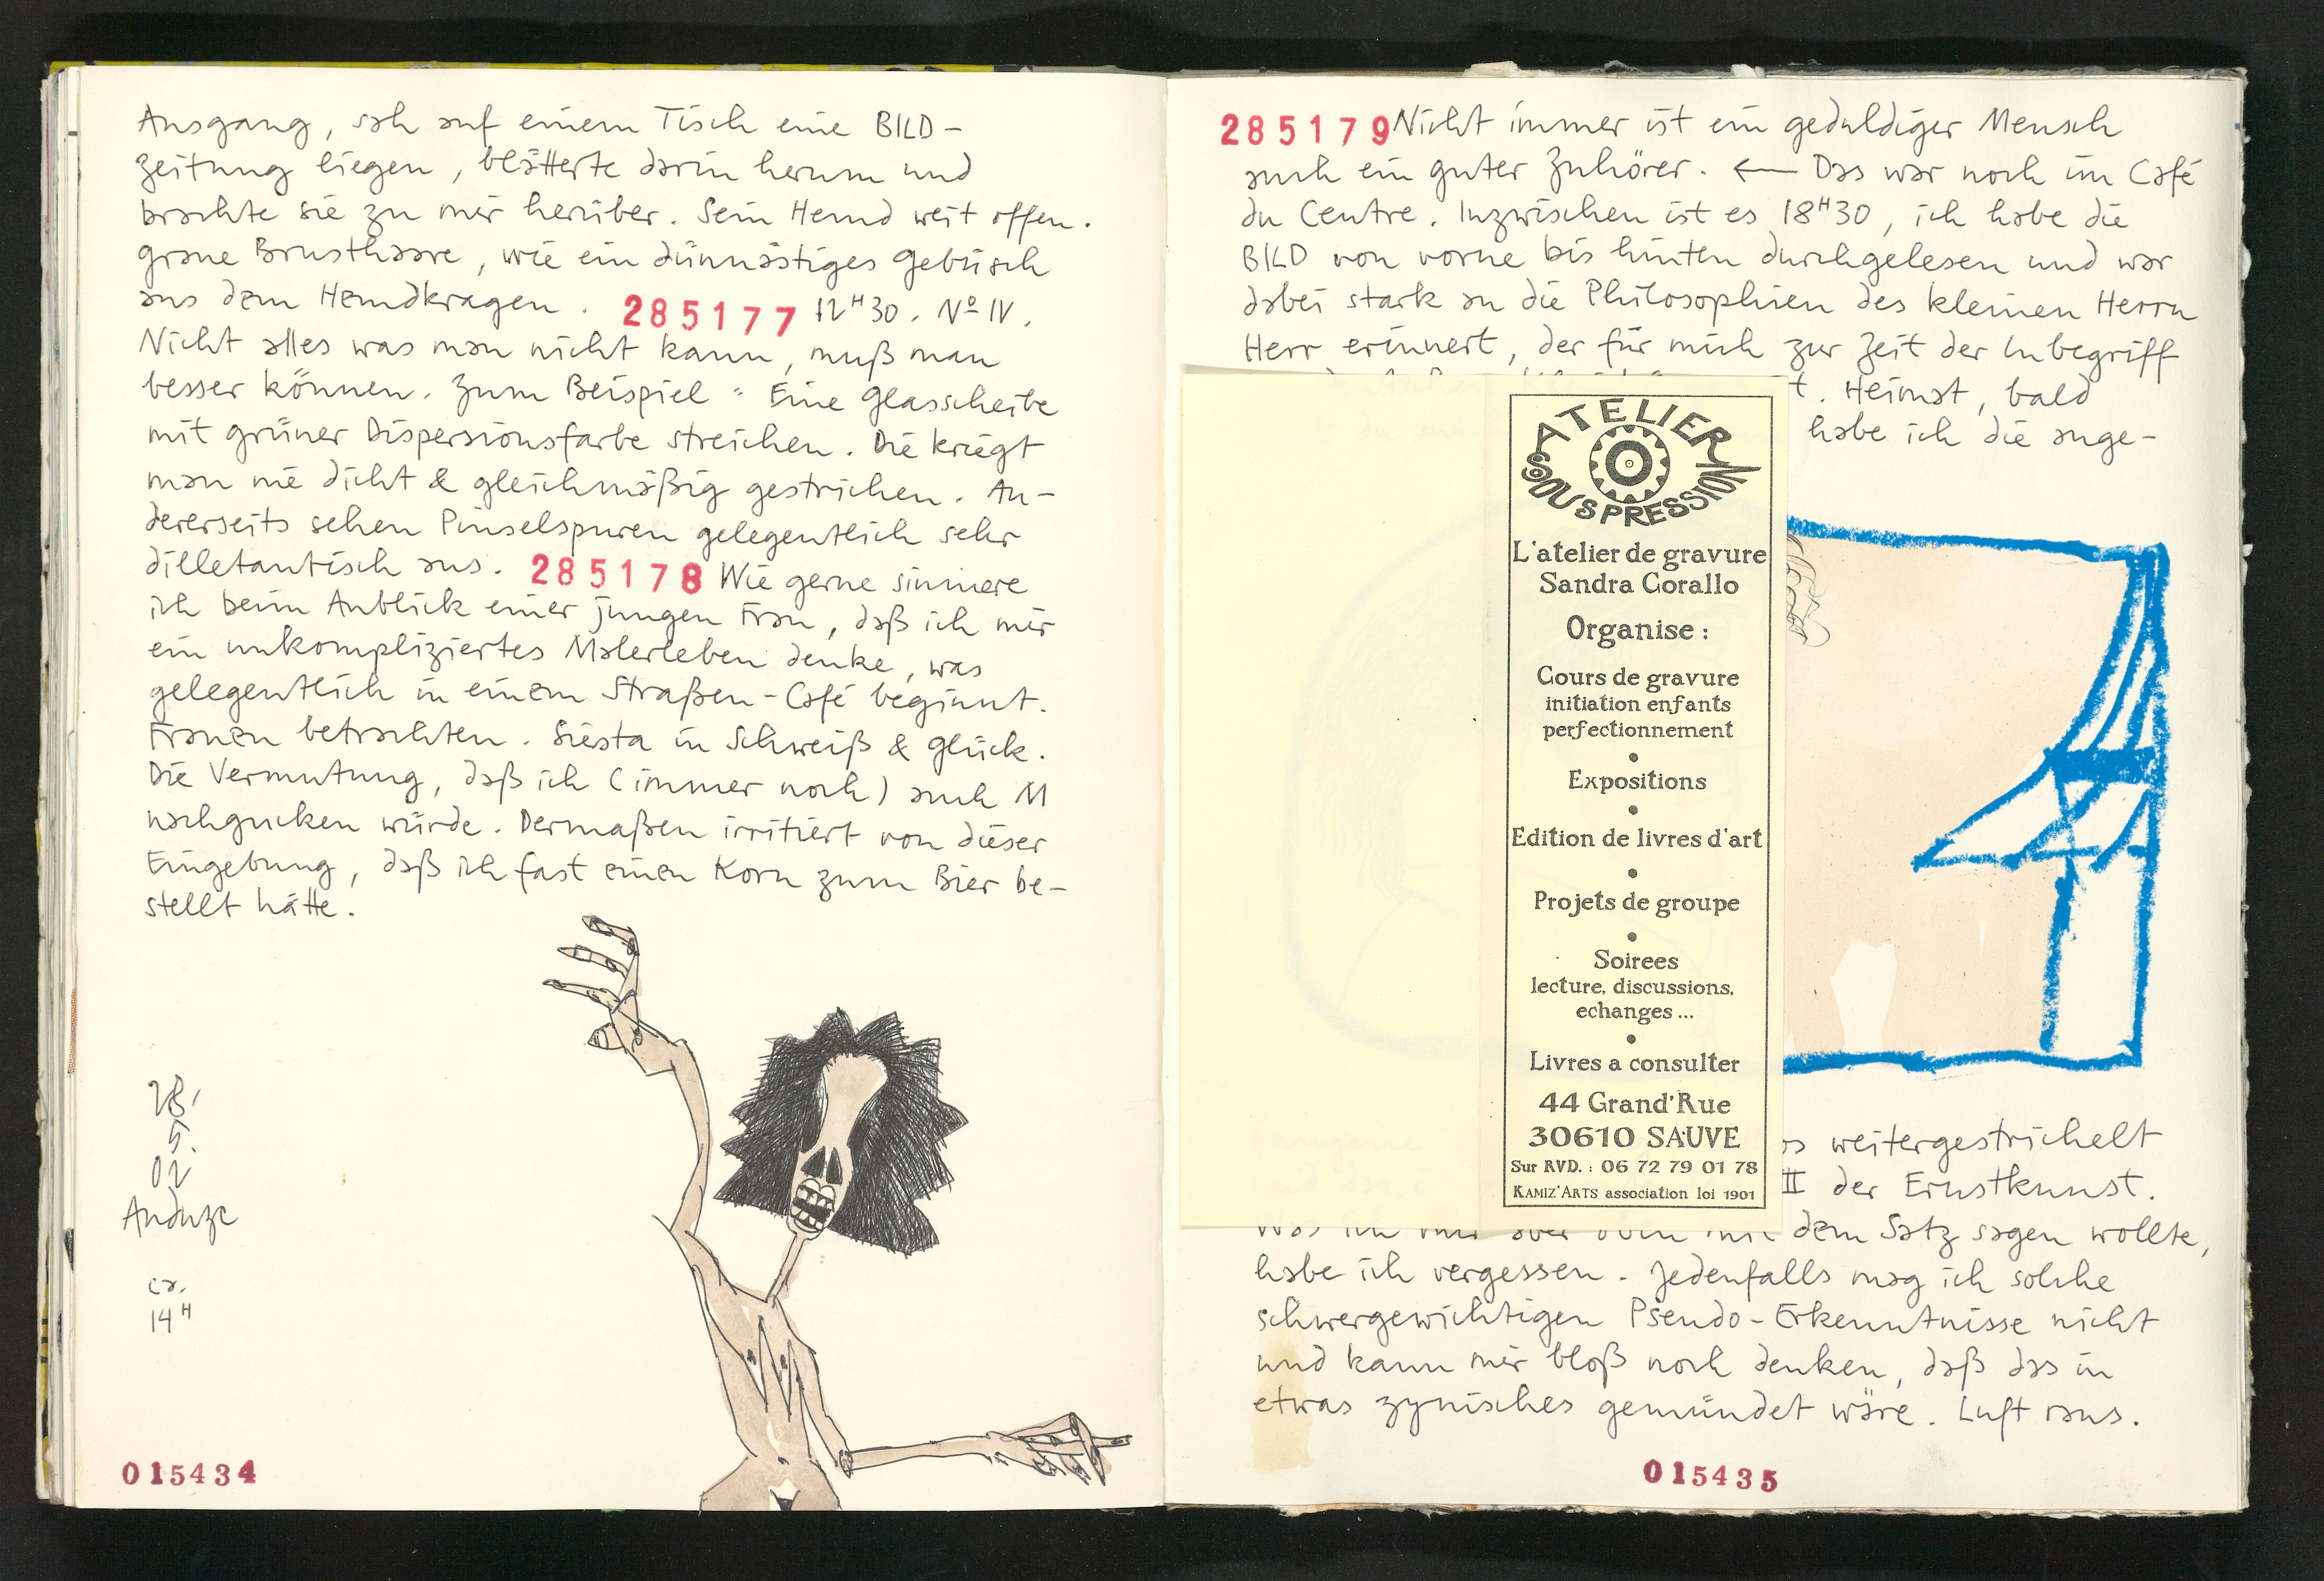 Ausgang, sah auf einem Tisch eine BILD-
zeitung liegen, blätterte darin herum und
brachte sie zu mir herüber. Sein Hemd weit offen.
graue Brusthaare, wie ein dünnästiges Gebüsch
aus dem Hemdkragen. 285177 12H30. Nº IV.
Nicht alles was man nicht kann, muß man
besser können. Zum Beispiel: Eine Glasscheibe
mit grüner Dispersionsfarbe streichen. Die kriegt
man nie dicht & gleichmäßig gestrichen. An-
dererseits sehen Pinselspuren gelegentlich sehr
dilletantisch aus. 285178 Wie gerne sinniere
ich beim Anblick einer jungen Frau, daß ich mir
ein unkompliziertes Malerleben denke, was
gelegentlich in einem Straßen-Café beginnt.
Frauen betrachten. Siesta in Schweiß & Glück.
Die Vermutung, daß ich (immer noch) auch M
nachgucken würde. Dermaßen irritiert von dieser
Eingebung, daß ich fast einen Korn zum Bier be-
stellt hätte.
28.
5.
02
Anduze
ca.
14H
015434
285179 Nicht immer ist ein geduldiger Mensch
auch ein guter Zuhörer. ← Das war noch im Café
du Centre. Inzwischen ist es 18H30, ich habe die
BILD von vorne bis hinten durchgelesen und war
dabei stark an die Philosophien des kleinen Herrn
Herr erinnert, der für mich zur Zeit der Inbegriff
t. Heimat, bald
habe ich die ange-
ATELIER
SOUS PRESSION
L'atelier de gravure
Sandra Corallo
Organise :
Cours de gravure
initiation enfants
perfectionnement
•
Expositions
•
Edition de livres d'art
•
Projets de groupe
•
Soirees
lecture, discussions,
echanges ...
•
Livres a consulter
44 Grand'Rue
30610 SAUVE
Sur RVD. : 06 72 79 01 78
KAMIZ'ARTS association loi 1901
weitergestrichelt
II der Ernstkunst.
Was ich mir aber oben mit dem Satz sagen wollte,
habe ich vergessen. Jedenfalls mag ich solche
schwergewichtigen Pseudo-Erkenntnisse nicht
und kann mir bloß noch denken, daß das in
etwas zynisches gemündet wäre. Luft raus.
015435